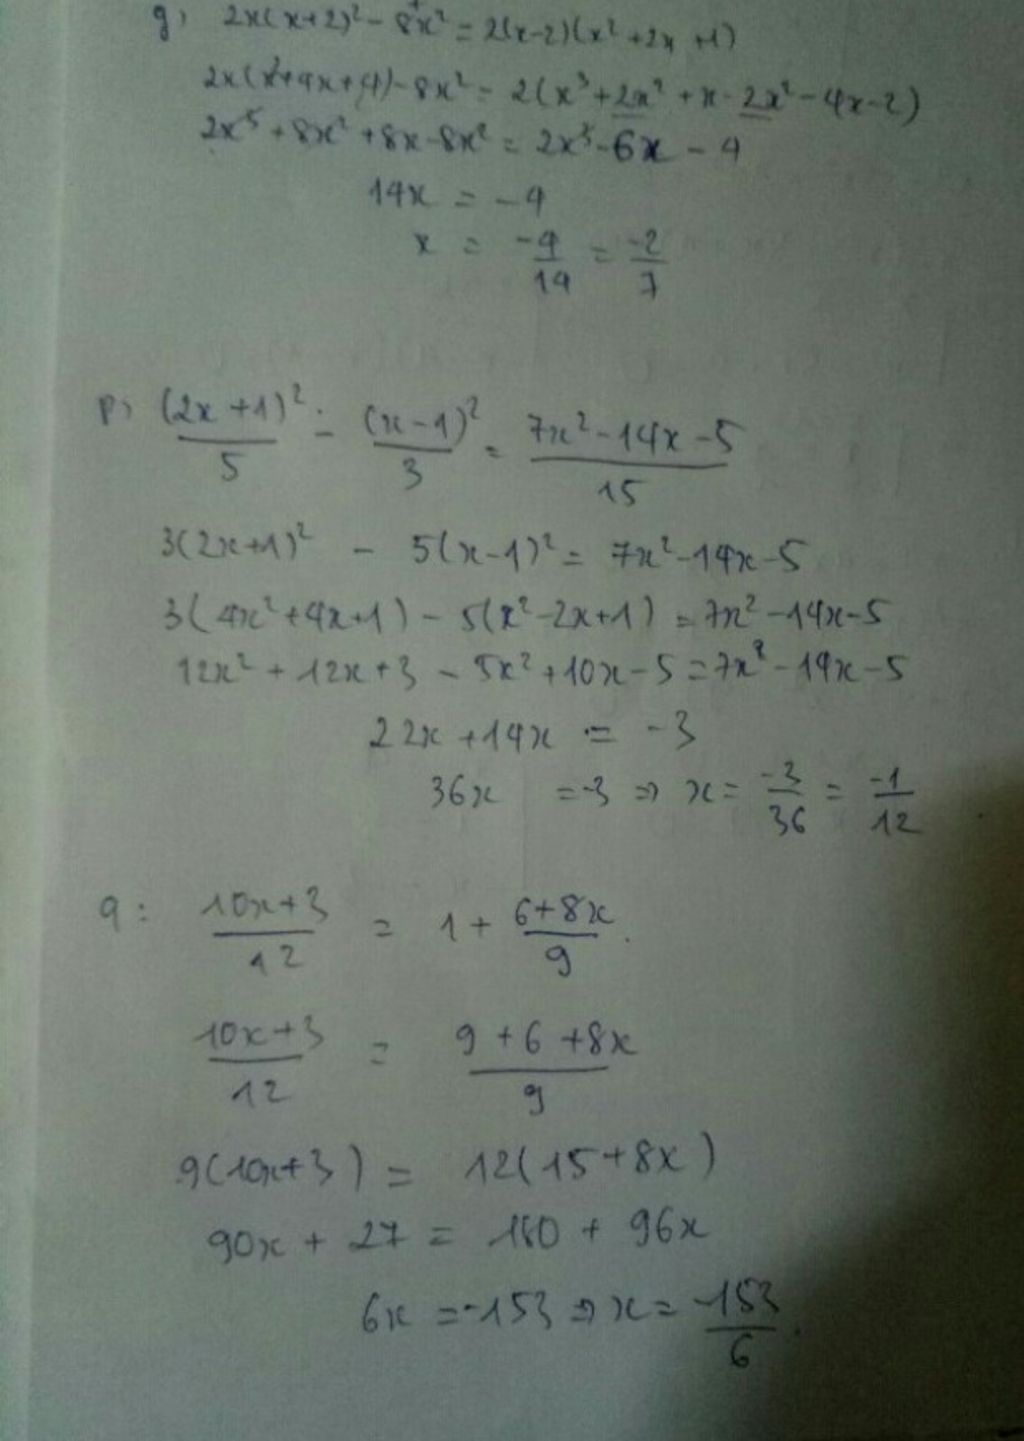 g, 2x(x+2)² - 8x² = 2(x-2)(x²+2x+1)
2x(x²+4x+4) - 8x² = 2(x³+2x²+x-2x²-4x-2)
2x³ + 8x² + 8x - 8x² = 2x³ - 6x - 4
14x = -4
x = -4/14 = -2/7
p, (2x+1)²/5 - (x-1)²/3 = 7x²-14x-5/15
3(2x+1)² - 5(x-1)² = 7x²-14x-5
3(4x²+4x+1) - 5(x²-2x+1) = 7x²-14x-5
12x² + 12x + 3 - 5x² + 10x - 5 = 7x² - 14x - 5
22x + 14x = -3
36x = -3 => x = -3/36 = -1/12
q: 10x+3/12 = 1 + 6+8x/9
10x+3/12 = 9+6+8x/9
9(10x+3) = 12(15+8x)
90x + 27 = 180 + 96x
6x = -153 => x = -153/6